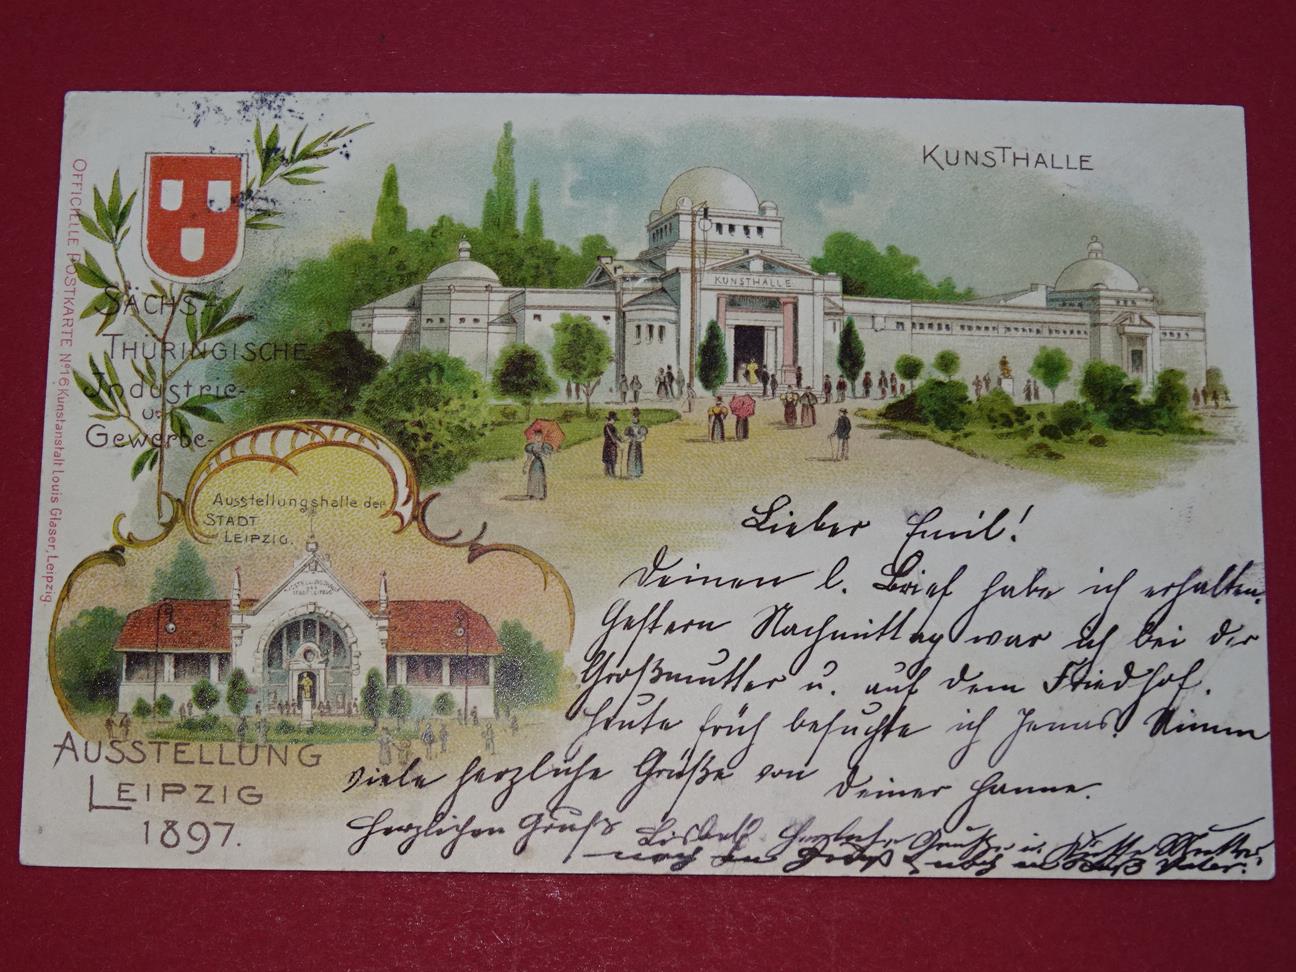 KUNSTHALLE
KUNSTHALLE
OFFICIELLE POSTKARTE Nº 16 Kunstanstalt Louis Glaser, Leipzig.
SÄCHS.-
THÜRINGISCHE
Industrie-
u.
Gewerbe-
Ausstellungshalle der
STADT
LEIPZIG.
AUSSTELLUNG
LEIPZIG
1897.
Lieber Emil!
Deinen l. Brief habe ich erhalten.
Gestern Nachmittag war ich bei der
Großmutter u. auf dem Friedhof.
Heute früh besuchte ich Nimm
viele herzliche Grüße von Deiner Hanne.
Herzlichen Gruß herzliche Grüße u.